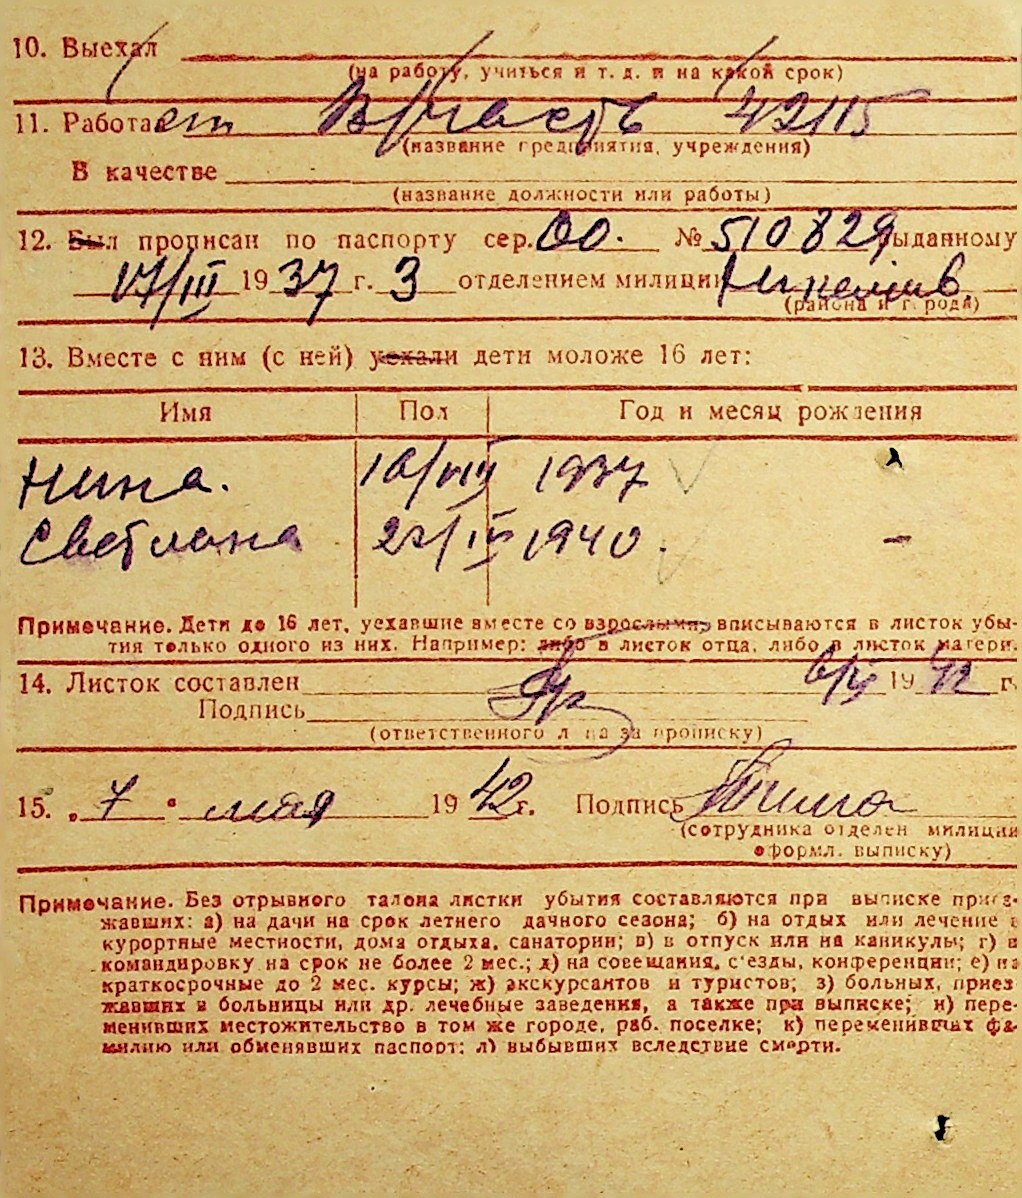 10. Выехал
(на работу, учиться и т. д. и на какой срок)
11. Работает В/часть 42115
(название предприятия, учреждения)
В качестве
(название должности или работы)
12. Был прописан по паспорту сер. № 510829 выданному
17/III 1937 г. 3 отделением милиции
(района и города)
13. Вместе с ним (с ней) уехали дети моложе 16 лет:
Имя Пол Год и месяц рождения
Нина. 10/VIII 1937
Светлана 1940.
Примечание. Дети до 16 лет, уехавшие вместе со взрослыми, вписываются в листок убы-
тия только одного из них. Например: либо в листок отца, либо в листок матери.
14. Листок составлен 1942 г.
Подпись
(ответственного лица за прописку)
15. „7" мая 1942 г. Подпись
(сотрудника отделен милиции
оформл. выписку)
Примечание. Без отрывного талона листки убытия составляются при выписке приез-
жавших: а) на дачи на срок летнего дачного сезона; б) на отдых или лечение в
курортные местности, дома отдыха, санатории; в) в отпуск или на каникулы; г) в
командировку на срок не более 2 мес.; д) на совещания, с'езды, конференции; е) на
краткосрочные до 2 мес. курсы; ж) экскурсантов и туристов; з) больных, приез
жавших в больницы или др. лечебные заведения, а также при выписке; и) пере-
менивших местожительство в том же городе, раб. поселке; к) переменивших фа-
милию или обменявших паспорт; л) выбывших вследствие смерти.